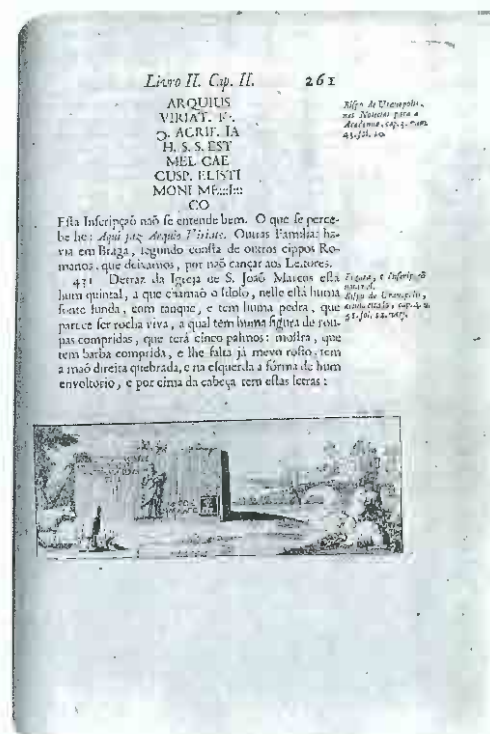 Livro II. Cap. II. 261
ARQUIUS
VIRIAT. F.
ACRIF. IA
H. S. S. EST
MEL CAE
CUSP. ELISTI
MONI ME:::I:::
CO
Bispo de Uranopolis,
nas Noticias para a
Academia, cap. 3. num.
43. fol. 20.
Esta Inscripçaõ naõ se entende bem. O que se perce-
be he: Aqui jaz Arquio Viriate. Outras Familias ha-
via em Braga, segundo consta de outros cippos Ro-
manos, que deixamos, por naõ cançar aos Leitores.
431 Detraz da Igreja de S. Joaõ Marcos está
hum quintal, a que chamaõ o Idolo, nelle está huma
fonte funda, com tanque, e tem huma pedra, que
parece ser rocha viva, a qual tem huma figura de rou-
pas compridas, que terá cinco palmos: mostra, que
tem barba comprida, e lhe falta já meyo rosto, tem
a maõ direita quebrada, e na esquerda a fórma de hum
envoltorio, e por cima da cabeça tem estas letras:
Figura, e Inscripçaõ
Bispo de Uranopolis,
cap. 4. n.
51. fol. 22. vers.